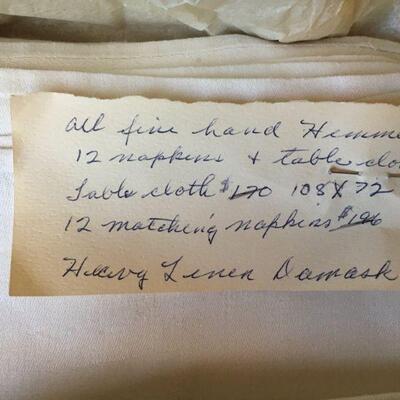 all fine hand Hemme
12 napkins + table clo
Table cloth $170 108 X 72
12 matching napkins
Heavy Linen Damask